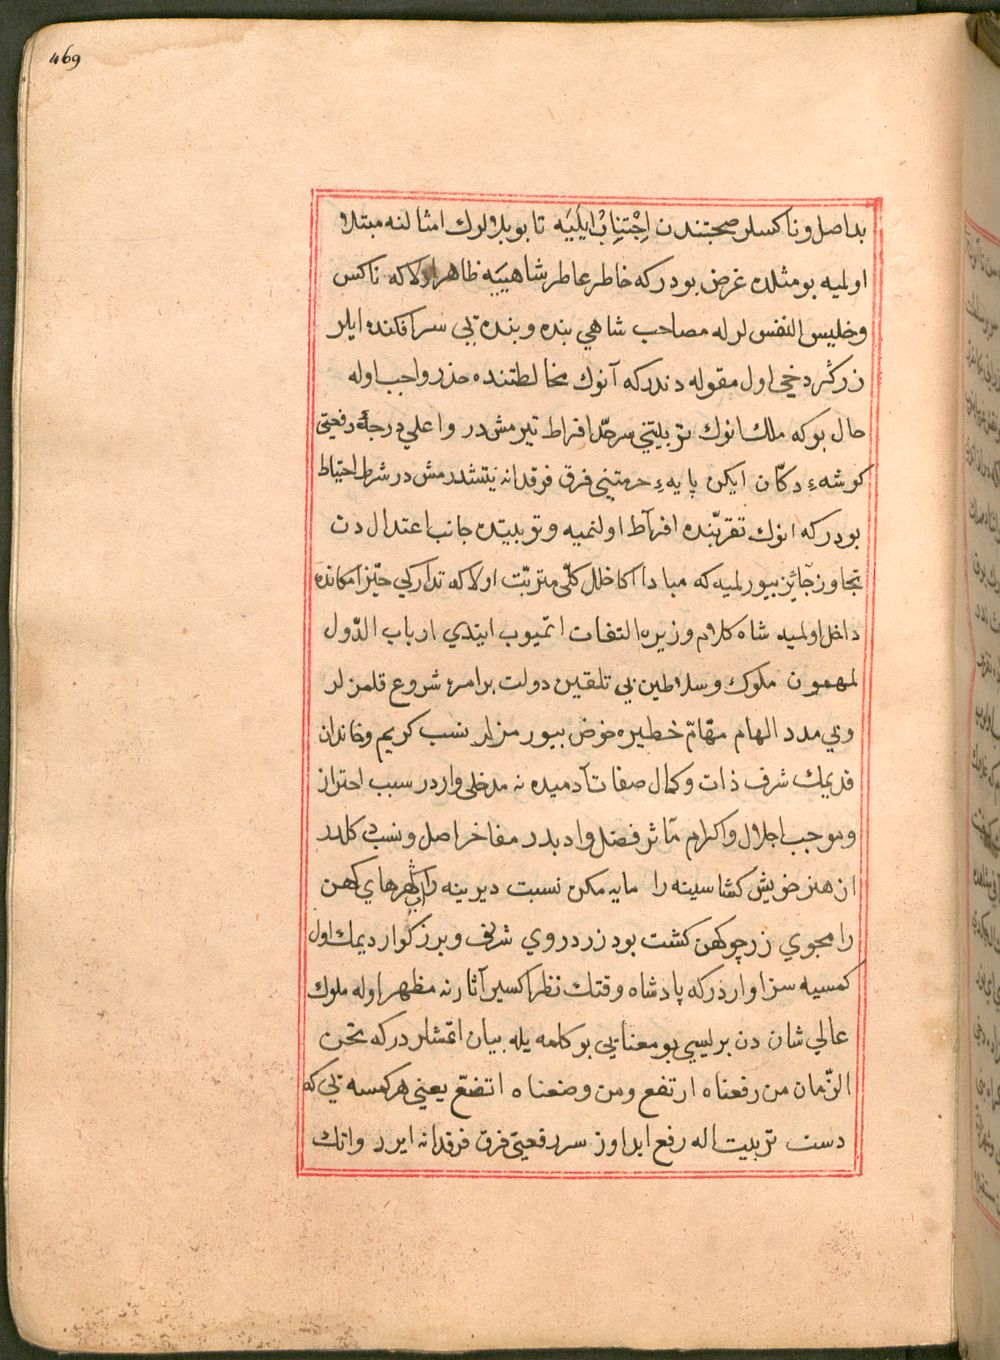 469
بد اصل و ناكسلر صحبتندن اِجْتِنِابْ ايلَيَه تا بو بلالرك امثالنه مبتلا
اولميه بو مثلده غرض بودركه خاطر عاطر شاهييَه ظاهر اولاكه ناكس
وخليس النفس لر له مصاحب شاهي بنده و بنده يي سرافكنده ايلر
زركر دخي اول مقوله دندركه آنوك مخالطتنده حذر واجب اوله
حال بوكه ملك انوك تربيتني سرحدّ افراط تيرمشدر واعلي درجهٔ رفعتي
كوشهٔء دكّان ايكن پايهٔء حرمتني فرق فرقدانه يتشدرمشدر شرط احتياط
بودركه انوك تقرّبنده افراط اولنميه و تربيتده جانب اعتدال دن
تجاوز جآئز بيورلميه كه مبادا اكا خلل كلّي مترتّب اولاكه تداركي حيّز امكانده
داخل اولميه شاه كلام وزيره التفات اتميوب ايتدي ارباب الدّول
لمهمون ملوك وسلاطين بي تلقين دولت برامره شروع قلمزلر
وبي مدد الهام مهّامّ خطيره خوض بيورمزلر نسب كريم وخاندان
قديمك شرف ذات وكمال صفات آدميده نه مدخلي واردر سبب احتراز
وموجب اجلال واكرام مآثر فضل وادبدر مفاخر اصل ونسب دكلدر
از هنر خويش كشا سينه را مايه مكن نسبت ديرينه را كهرهاي كهن
را مجوي زر چو كهن كشت بود زرد روي شريف وبزركوار ديمك اول
كمسيه سزاواردركه پادشاه وقتك نظر اكسير آثارنه مظهر اوله ملوك
عالي شان دن بريسي بو معنايي بو كلمه يله بيان اتمشلردركه نحن
الزّمان من رفعناه ارتفع ومن وضعناه اتضع يعني هر كمسه يي كه
دست تربيت اله رفع ايداوز سر رفعتي فرق فرقدانه ايرر وانك